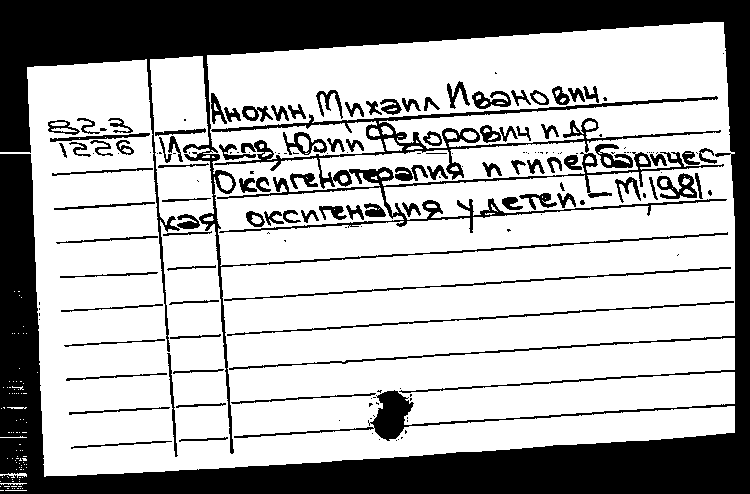 Анохин, Михаил Иванович.
82-3
1226
Исаков, Юрий Федорович и др.
Оксигенотерапия и гипербаричес-
кая оксигенация у детей. – М. 1981.